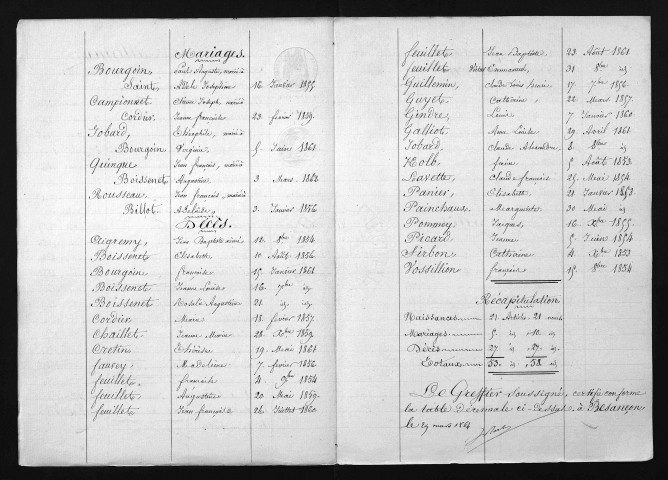 Mariages.
Bourgoin, Paul Auguste, marié à
Saint, Adèle Joséphine 16 Janvier 1855
Campionnet Claude Joseph, marié à
Cordier Jeanne françoise 23 février 1859.
Jobard, Théophile, marié à
Bourgoin Virginie 5 1861
Quinque Jean françois, marié à
Boissenet Augustine 3 Mars 1862
Rousseau Jean françois, marié à
Billot. Adelaïde 3 Janvier 1856
Décès.
Aigremy, Jean Baptiste 12 8bre 1854
Boissenet Elisabeth 10 Août 1856
Bourgoin françoise 15 Janvier 1861
Boissenet Jeanne Louise 16 7bre id
Boissenet Rosalie Augustine 21 id id
Cordier Marie 18 février 1857
Chaillet Jeanne Marie 28 Xbre 1859
Cretin Théoïse 19 Mai 1861
Madeleine 7 février 1856
feuillet françoise 4 9bre 1854
feuillet Augustine 20 Mai 1859
feuillet Jean françois 24 Juillet 1860
feuillet Jean Baptiste 23 Août 1861
feuillet 31 8bre id
Guillemin, Claude Louis 17 7bre 1856
Guyot Catherine 22 Mars 1857
Gindre, Louise 7 Janvier 1860
Galliot Anne Louise 29 Avril 1861
Jobard Claude Alexandre 2 8bre id
Kolb 5 Août 1853
Lavette Claude françois 25 Mai 1854
Panier Elisabeth 21 Janvier 1853
Painchaux Marguerite 30 Mai id
Pommey Jacques 16 Xbre 1855
Picard Jeanne 5 Juin 1854
Serbon Catherine 4 Xbre 1853
Vossillion françois 15 8bre 1854
Récapitulation
Naissances 21 Articles. 21 noms
Mariages 5 id 10 id
Décès 27 id 27 id
Totaux 53. id 58. id
Le Greffier soussigné, certifie conforme
la table Décennale ci-Dessus. à Besançon
le 29 mars 1864